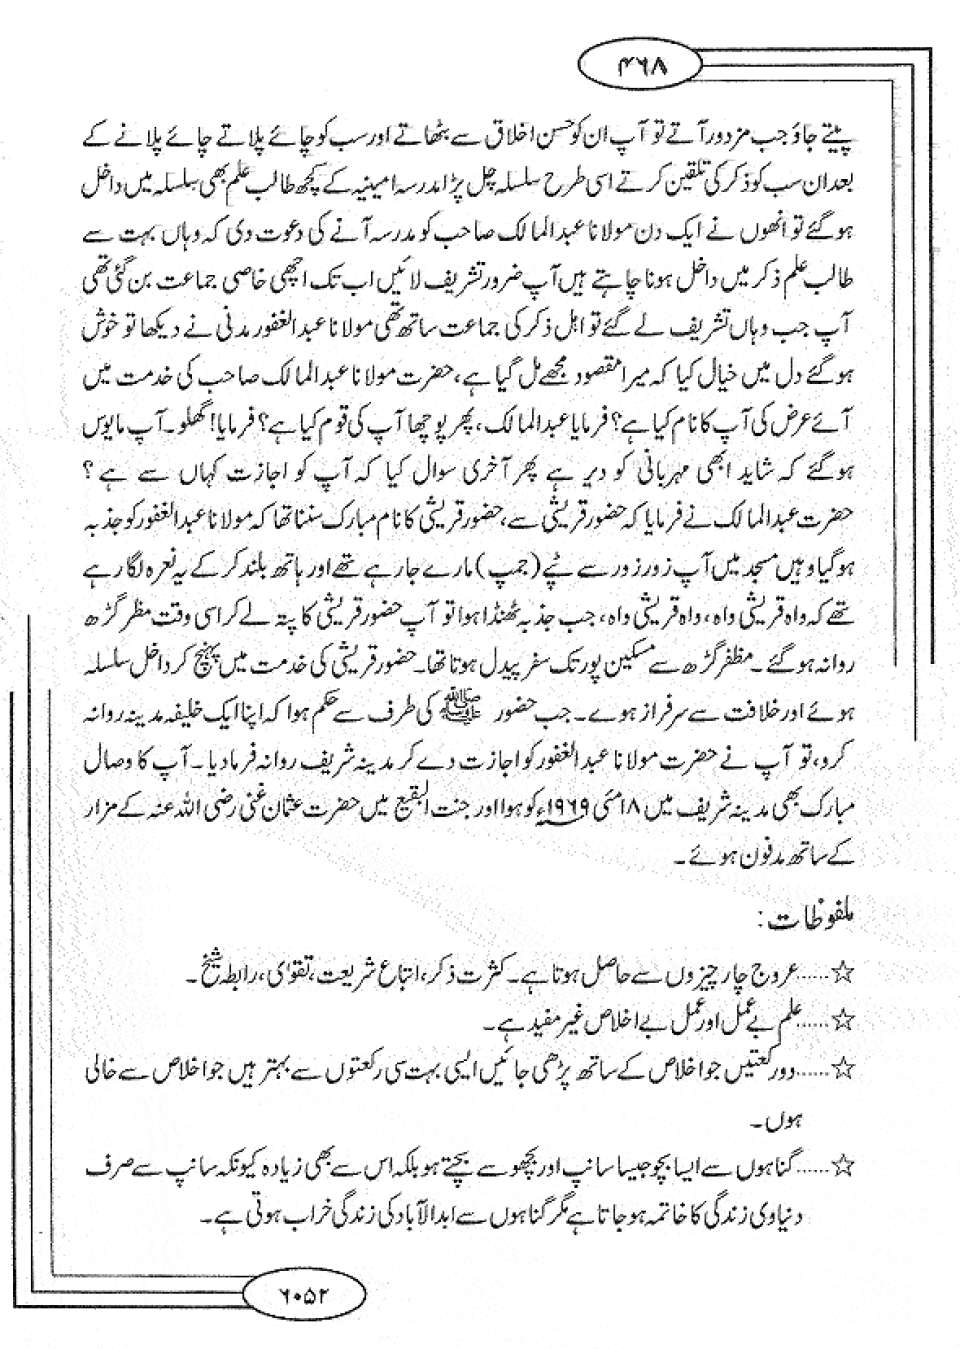 ۴۶۸
پیتے جاؤ جب مزدور آتے تو آپ ان کو حسن اخلاق سے بٹھاتے اور سب کو چائے پلاتے چائے پلانے کے
بعد ان سب کو ذکر کی تلقین کرتے اسی طرح سلسلہ چل پڑا مدرسہ امینیہ کے کچھ طالب علم بھی سلسلہ میں داخل
ہو گئے تو انھوں نے ایک دن مولانا عبدالمالک صاحب کو مدرسہ آنے کی دعوت دی کہ وہاں بہت سے
طالب علم ذکر میں داخل ہونا چاہتے ہیں آپ ضرور تشریف لائیں اب تک اچھی خاصی جماعت بن گئی تھی
آپ جب وہاں تشریف لے گئے تو اہل ذکر کی جماعت ساتھ تھی مولانا عبدالغفور مدنی نے دیکھا تو خوش
ہو گئے دل میں خیال کیا کہ میرا مقصود مجھے مل گیا ہے، حضرت مولانا عبدالمالک صاحب کی خدمت میں
آئے عرض کی آپ کا نام کیا ہے؟ فرمایا عبدالمالک، پھر پوچھا آپ کی قوم کیا ہے؟ فرمایا! گھلو۔ آپ مایوس
ہو گئے کہ شاید ابھی مہربانی کو دیر ہے پھر آخری سوال کیا کہ آپ کو اجازت کہاں سے ہے ؟
حضرت عبدالمالک نے فرمایا کہ حضور قریشی سے، حضور قریشی کا نام مبارک سننا تھا کہ مولانا عبدالغفور کو جذبہ
ہو گیا وہیں مسجد میں آپ زور زور سے ٹپے (جمپ) مارے جا رہے تھے اور ہاتھ بلند کر کے یہ نعرہ لگا رہے
تھے کہ واہ قریشی واہ، واہ قریشی واہ، جب جذبہ ٹھنڈا ہوا تو آپ حضور قریشی کا پتہ لے کر اسی وقت مظفر گڑھ
روانہ ہو گئے۔ مظفر گڑھ سے مسکین پور تک سفر پیدل ہوتا تھا۔ حضور قریشی کی خدمت میں پہنچ کر داخل سلسلہ
ہوئے اور خلافت سے سرفراز ہوے۔ جب حضور ﷺ کی طرف سے حکم ہوا کہ اپنا ایک خلیفہ مدینہ روانہ
کرو، تو آپ نے حضرت مولانا عبدالغفور کو اجازت دے کر مدینہ شریف روانہ فرما دیا۔ آپ کا وصال
مبارک بھی مدینہ شریف میں ۱۸ مئی ۱۹۶۹ء کو ہوا اور جنت البقیع میں حضرت عثمان غنی رضی اللہ عنہ کے مزار
کے ساتھ مدفون ہوئے۔
ملفوظات:
☆......عروج چار چیزوں سے حاصل ہوتا ہے۔ کثرت ذکر، اتباع شریعت، تقوٰی، رابطہ شیخ۔
☆......علم بے عمل اور عمل بے اخلاص غیر مفید ہے۔
☆......دو رکعتیں جو اخلاص کے ساتھ پڑھی جائیں ایسی بہت سی رکعتوں سے بہتر ہیں جو اخلاص سے خالی
ہوں۔
☆......گناہوں سے ایسا بچو جیسا سانپ اور بچھو سے بچتے ہو بلکہ اس سے بھی زیادہ کیونکہ سانپ سے صرف
دنیاوی زندگی کا خاتمہ ہو جاتا ہے مگر گناہوں سے ابدالآباد کی زندگی خراب ہوتی ہے۔
۶۰۵۲